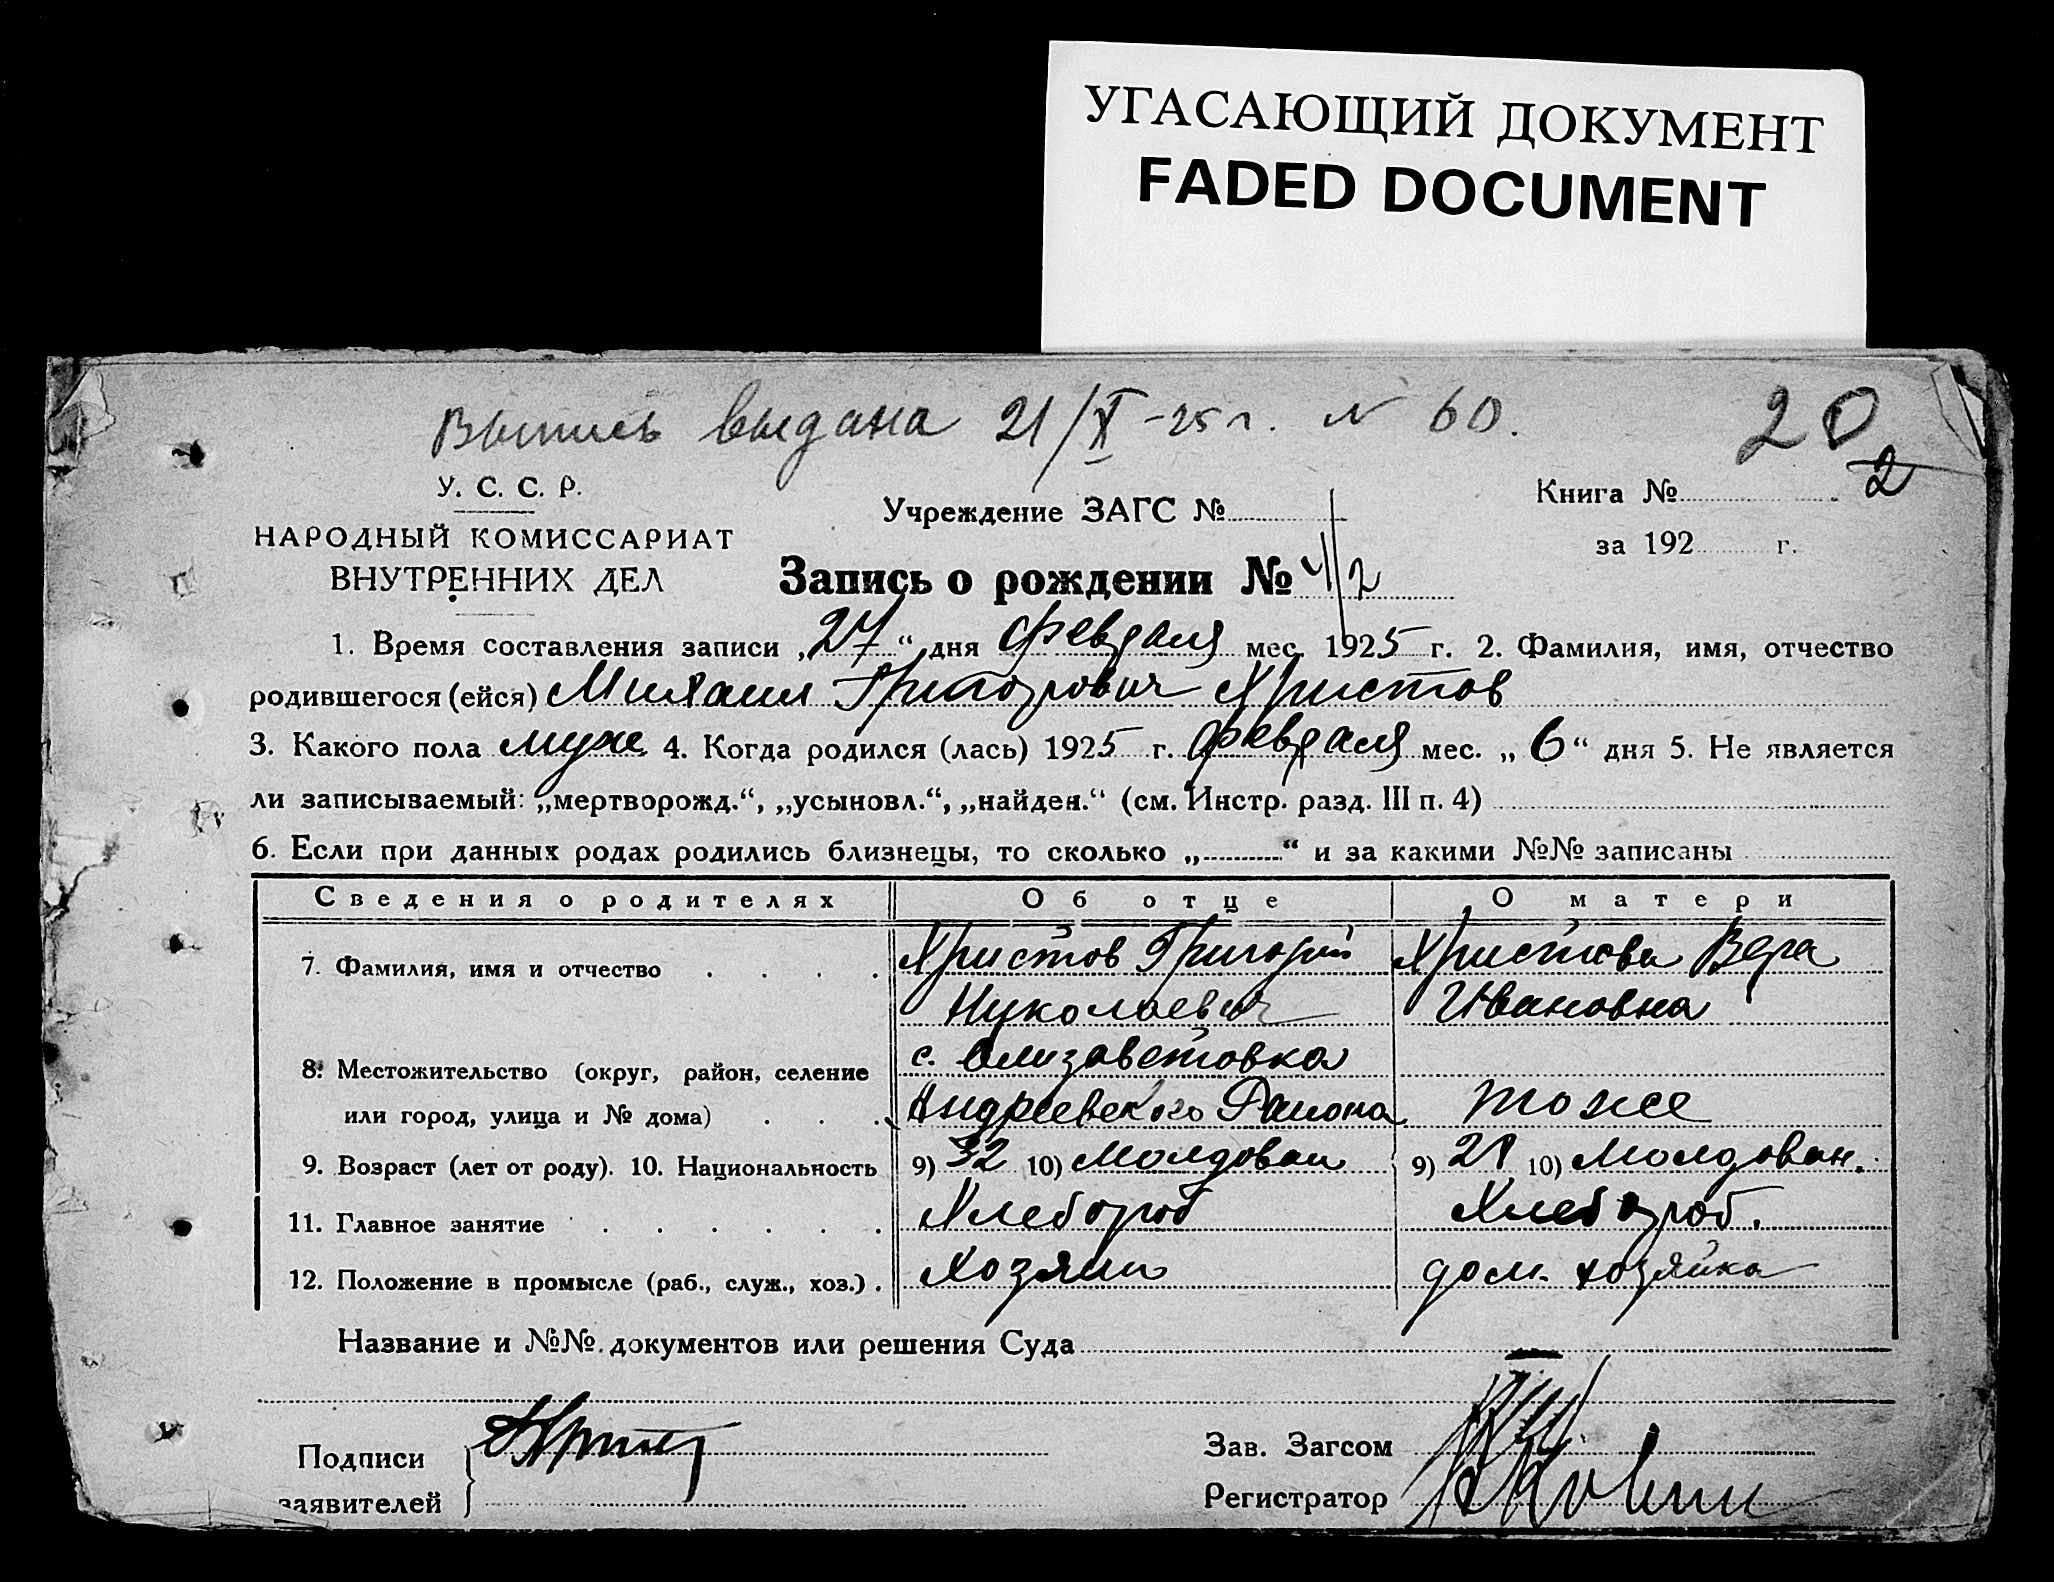 УГАСАЮЩИЙ ДОКУМЕНТ
FADED DOCUMENT
Выпись выдана 21/X-25 г. № 60.
20
2
У. С. С. Р.
НАРОДНЫЙ КОМИССАРИАТ
ВНУТРЕННИХ ДЕЛ
Учреждение ЗАГС №
Книга №
за 192 г.
Запись о рождении № /2
1. Время составления записи „27“ дня февраля мес. 1925 г. 2. Фамилия, имя, отчество
родившегося (ейся) Михаил Григорович Христов
3. Какого пола муж 4. Когда родился (лась) 1925 г. февраля мес. „6“ дня 5. Не является
ли записываемый: „мертворожд.“, „усыновл.“, „найден.“ (см. Инстр. разд. III п. 4)
6. Если при данных родах родились близнецы, то сколько „ “ и за какими №№ записаны
Сведения о родителях Об отце О матери
7. Фамилия, имя и отчество . . . . Христов Григорий Христова Вера
Николаевич Ивановна
8. Местожительство (округ, район, селение с. Елизаветовка
или город, улица и № дома) . . . Андреевского Района тоже
9. Возраст (лет от роду). 10. Национальность 9) 32 10) Молдован 9) 28 10) Молдован.
11. Главное занятие . . . . . . Хлебороб Хлебороб.
12. Положение в промысле (раб., служ., хоз.) . Хозяин дом. хозяйка
Название и №№ документов или решения Суда
Подписи
заявителей
Зав. Загсом
Регистратор